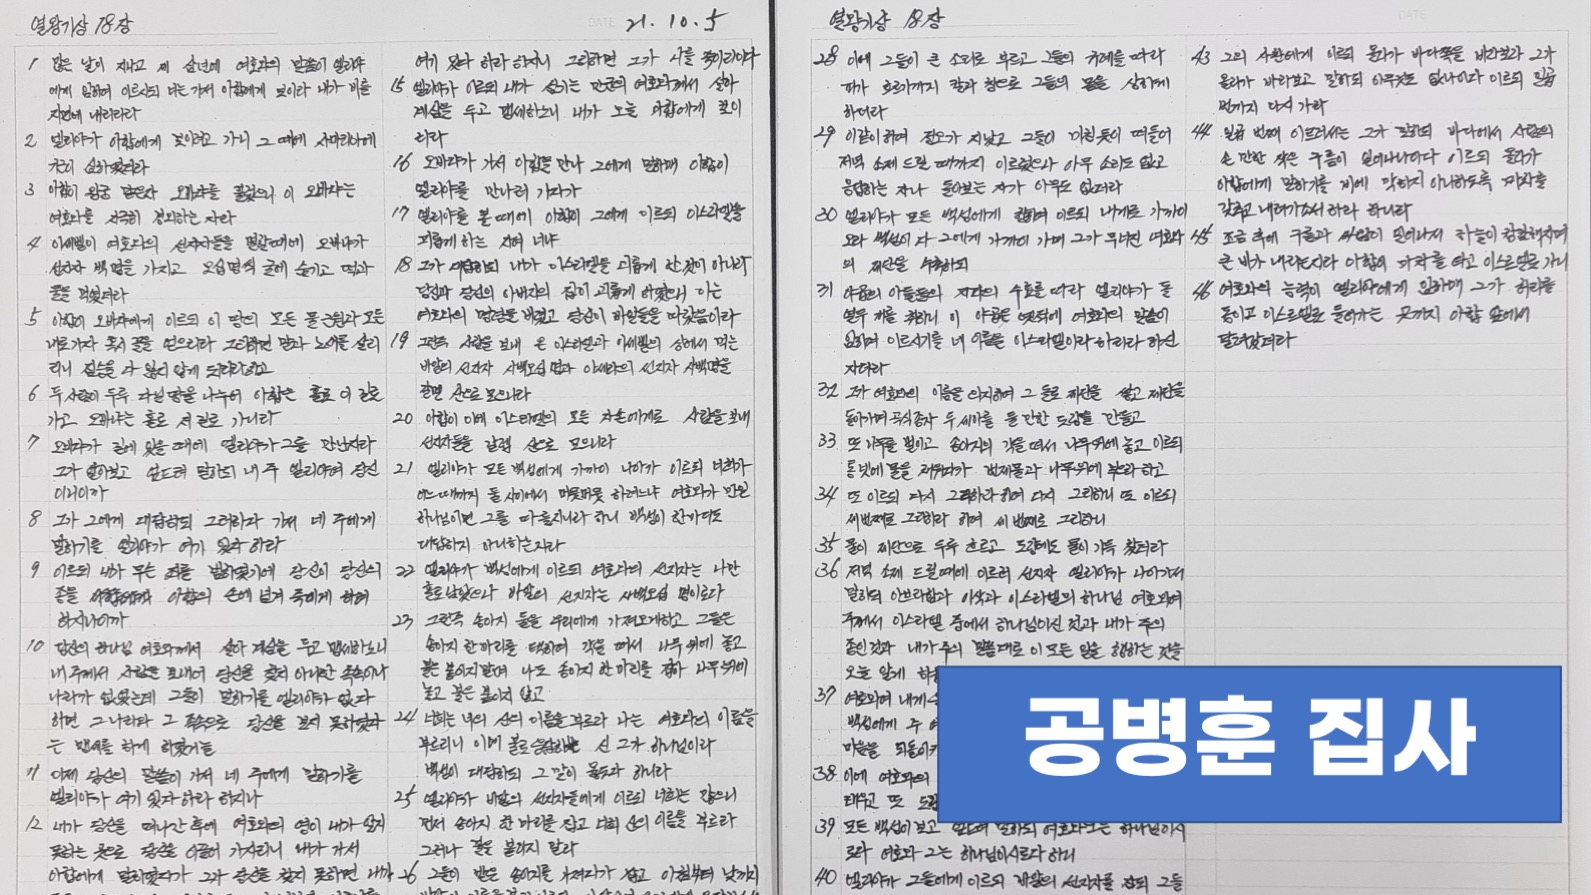 열왕기상 18장
DATE 21. 10. 5
1 많은 날이 지나고 제 삼년에 여호와의 말씀이 엘리야
에게 임하여 이르시되 너는 가서 아합에게 보이라 내가 비를
지면에 내리리라
2 엘리야가 아합에게 보이려고 가니 그 때에 사마리아에
기근이 심하였더라
3 아합이 왕궁 맡은자 오바댜를 불렀으니 이 오바댜는
여호와를 지극히 경외하는 자라
4 이세벨이 여호와의 선지자들을 멸할때에 오바댜가
선지자 백명을 가지고 오십명씩 굴에 숨기고 떡과
물을 먹였더라
5 아합이 오바댜에게 이르되 이 땅의 모든 물 근원과 모든
내로가자 혹시 꼴을 얻으리라 그리하면 말과 노새를 살리
리니 짐승을 다 잃지 않게 되리라하고
6 두 사람이 두루 다닐 땅을 나누어 아합은 홀로 이 길로
가고 오바댜는 홀로 저 길로 가니라
7 오바댜가 길에 있을 때에 엘리야가 그를 만난지라
그가 알아보고 엎드려 말하되 내 주 엘리야여 당신
이니이까
8 그가 그에게 대답하되 그러하다 가서 네 주에게
말하기를 엘리야가 여기 있다 하라
9 이르되 내가 무슨 죄를 범하였기에 당신이 당신의
종을 아합의 손에 넘겨 죽이게 하려
하시나이까
10 당신의 하나님 여호와께서 살아 계심을 두고 맹세하노니
내 주께서 사람을 보내어 당신을 찾지 아니한 족속이나
나라가 없었는데 그들이 말하기를 엘리야가 없다
하면 그 나라와 그 족속으로 당신을 보지 못하였다
는 맹세를 하게 하였거늘
11 이제 당신의 말씀이 가서 네 주에게 말하기를
엘리야가 여기 있다 하라 하시나
12 내가 당신을 떠나간 후에 여호와의 영이 내가 알지
못하는 곳으로 당신을 이끌어 가시리니 내가 가서
아합에게 말하였다가 그가 당신을 찾지 못하면 내가
여기 있다 하라 하시니 그리하면 그가 나를 죽이리이다
15 엘리야가 이르되 내가 섬기는 만군의 여호와께서 살아
계심을 두고 맹세하노니 내가 오늘 아합에게 보이
리라
16 오바댜가 가서 아합을 만나 그에게 말하매 아합이
엘리야를 만나러 가다가
17 엘리야를 볼 때에 아합이 그에게 이르되 이스라엘을
괴롭게 하는 자여 너냐
18 그가 대답하되 내가 이스라엘을 괴롭게 한 것이 아니라
당신과 당신의 아버지의 집이 괴롭게 하였으니 이는
여호와의 명령을 버렸고 당신이 바알들을 따랐음이라
19 그런즉 사람을 보내 온 이스라엘과 이세벨의 상에서 먹는
바알의 선지자 사백오십 명과 아세라의 선지자 사백명을
갈멜 산으로 모으니라
20 아합이 이에 이스라엘의 모든 자손에게로 사람을 보내
선지자들을 갈멜 산으로 모으니라
21 엘리야가 모든 백성에게 가까이 나아가 이르되 너희가
어느때까지 둘 사이에서 머뭇머뭇 하려느냐 여호와가 만일
하나님이면 그를 따를지니라 하니 백성이 한마디도
대답하지 아니하는지라
22 엘리야가 백성에게 이르되 여호와의 선지자는 나만
홀로 남았으나 바알의 선지자는 사백오십 명이로다
23 그런즉 송아지 둘을 우리에게 가져오게하고 그들은
송아지 한마리를 택하여 각을 떠서 나무 위에 놓고
불은 붙이지말며 나도 송아지 한마리를 잡아 나무 위에
놓고 불은 붙이지 않고
24 너희는 너희 신의 이름을 부르라 나는 여호와의 이름을
부르리니 이에 불로 응답하는 신 그가 하나님이라
백성이 대답하되 그 말이 옳도다 하니라
25 엘리야가 바알의 선지자들에게 이르되 너희는 많으니
먼저 송아지 한 마리를 잡고 너희 신의 이름을 부르라
그러나 불을 붙이지 말라
26 그들이 받은 송아지를 가져다가 잡고 아침부터 낮까지
열왕기상 18장
DATE
28 이에 그들이 큰 소리로 부르고 그들의 규례를 따라
피가 흐르기까지 칼과 창으로 그들의 몸을 상하게
하더라
29 이같이 하여 정오가 지났고 그들이 미친듯이 떠들어
저녁 소제 드릴 때까지 이르렀으나 아무 소리도 없고
응답하는 자나 돌아보는 자가 아무도 없더라
30 엘리야가 모든 백성에게 향하여 이르되 내게로 가까이
오라 백성이 다 그에게 가까이 가매 그가 무너진 여호와
의 제단을 수축하되
31 야곱의 아들들의 지파의 수효를 따라 엘리야가 돌
열두 개를 취하니 이 야곱은 옛적에 여호와의 말씀이
임하여 이르시기를 네 이름을 이스라엘이라 하리라 하신
자더라
32 그가 여호와의 이름을 의지하여 그 돌로 제단을 쌓고 제단을
돌아가며 곡식종자 두 세아를 둘 만한 도랑을 만들고
33 또 나무를 벌이고 송아지의 각을 떠서 나무 위에 놓고 이르되
통 넷에 물을 채워다가 번제물과 나무 위에 부으라 하고
34 또 이르되 다시 그리하라 하여 다시 그리하니 또 이르되
세번째로 그리하라 하여 세 번째로 그리하니
35 물이 제단으로 두루 흐르고 도랑에도 물이 가득 찼더라
36 저녁 소제 드릴 때에 이르러 선지자 엘리야가 나아가서
말하되 아브라함과 이삭과 이스라엘의 하나님 여호와여
주께서 이스라엘 중에서 하나님이신 것과 내가 주의
종인것과 내가 주의 말씀대로 이 모든 일을 행하는 것을
오늘 알게 하
37 여호와여 내게
백성에게 주 여
마음을 되돌이키
38 이에 여호와의
태우고 또 도랑
39 모든 백성이 보고 엎드려 말하되 여호와 그는 하나님이시
로다 여호와 그는 하나님이시로다 하니
40 엘리야가 그들에게 이르되 바알의 선지자를 잡되 그들
43 그의 사환에게 이르되 올라가 바다쪽을 바라보라 그가
올라가 바라보고 말하되 아무것도 없나이다 이르되 일곱
번까지 다시 가라
44 일곱 번째 이르러서는 그가 말하되 바다에서 사람의
손 만한 작은 구름이 일어나나이다 이르되 올라가
아합에게 말하기를 비에 막히지 아니하도록 마차를
갖추고 내려가소서 하라 하니라
45 조금 후에 구름과 바람이 일어나서 하늘이 캄캄해지며
큰 비가 내리는지라 아합이 마차를 타고 이스르엘로 가니
46 여호와의 능력이 엘리야에게 임하매 그가 허리를
동이고 이스르엘로 들어가는 곳까지 아합 앞에서
달려갔더라
공병훈 집사